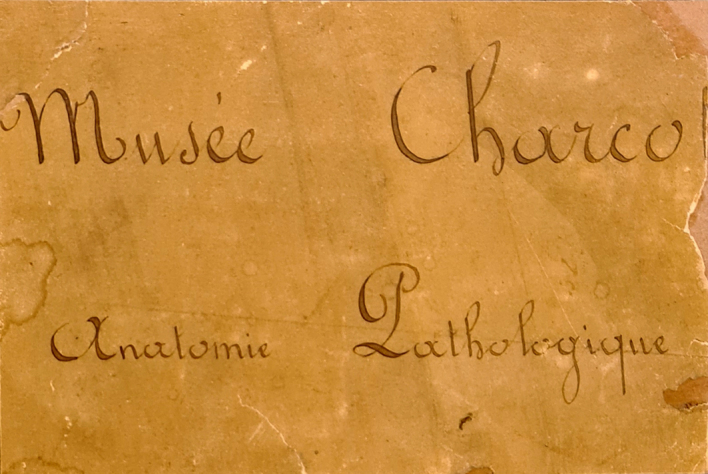 Musée Charcot
Anatomie Pathologique